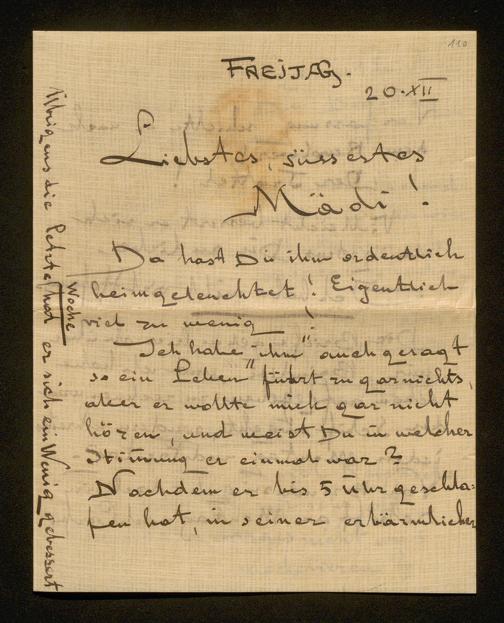 110
FREITAG.
20.XII
Liebstes, süssestes
Mädi!
Da hast Du ihm ordentlich
heimgeleuchtet! Eigentlich
viel zu wenig!
Ich habe "ihm" auch gesagt
so ein Leben führt zu gar nichts,
aber er wollte mich gar nicht
hören, und weist Du in welcher
Stimung er einmal war?
Nachdem er bis 5 Uhr geschla-
fen hat, in seiner erbärmlichen
Übrigens die letzte Woche hat er sich ein Wenig gebessert